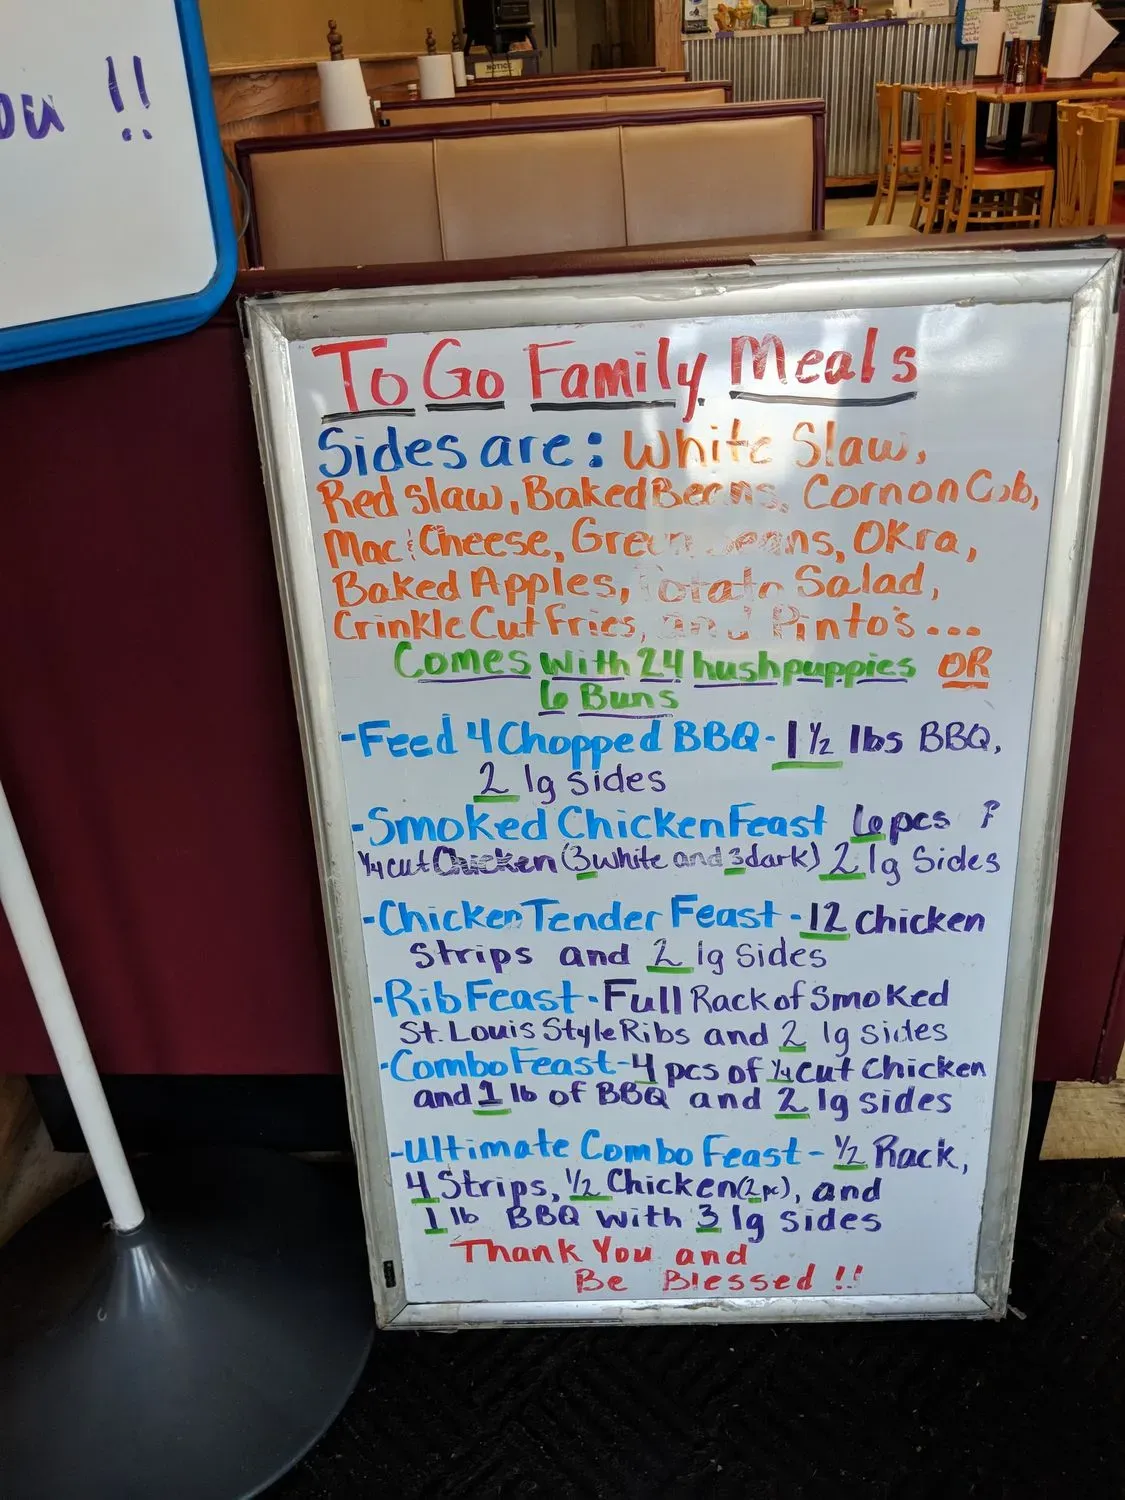 ou !!
NOTICE
To Go Family Meals
Sides are: White Slaw,
Red slaw, Baked Beans, Corn on Cob,
Mac & Cheese, Green Beans, Okra,
Baked Apples, Potato Salad,
Crinkle Cut Fries, and Pinto's...
Comes with 24 hushpuppies OR
6 Buns
-Feed 4 Chopped BBQ - 1 1/2 lbs BBQ,
2 lg sides
-Smoked Chicken Feast 6 pcs
1/4 cut Chicken (3 white and 3 dark) 2 lg Sides
-Chicken Tender Feast - 12 chicken
Strips and 2 lg sides
-Rib Feast - Full Rack of Smoked
St. Louis Style Ribs and 2 lg sides
-Combo Feast - 4 pcs of 1/4 cut chicken
and 1 lb of BBQ and 2 lg sides
-Ultimate Combo Feast - 1/2 Rack,
4 Strips, 1/2 Chicken (2 pc), and
1 lb BBQ with 3 lg sides
Thank You and
Be Blessed !!